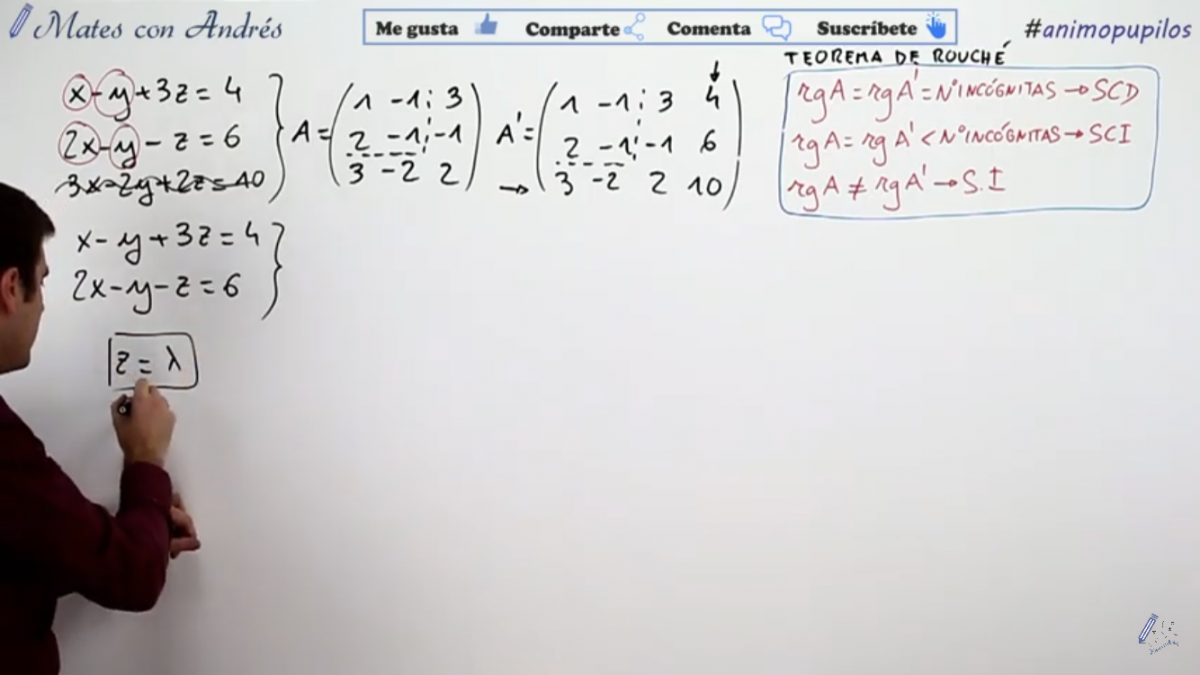 Mates con Andrés
Me gusta Comparte Comenta Suscríbete
#animopupilos
x - y + 3z = 4
2x - y - z = 6
3x - 2y + 2z = 10
A =
1 -1 3
2 -1 -1
3 -2 2
A' =
1 -1 3 4
2 -1 -1 6
3 -2 2 10
TEOREMA DE ROUCHÉ
rgA = rgA' = NºINCÓGNITAS → SCD
rgA = rgA' < NºINCÓGNITAS → SCI
rgA ≠ rgA' → S.I
x - y + 3z = 4
2x - y - z = 6
z = λ